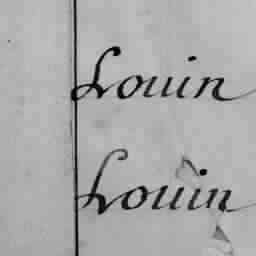 Louin
Louin